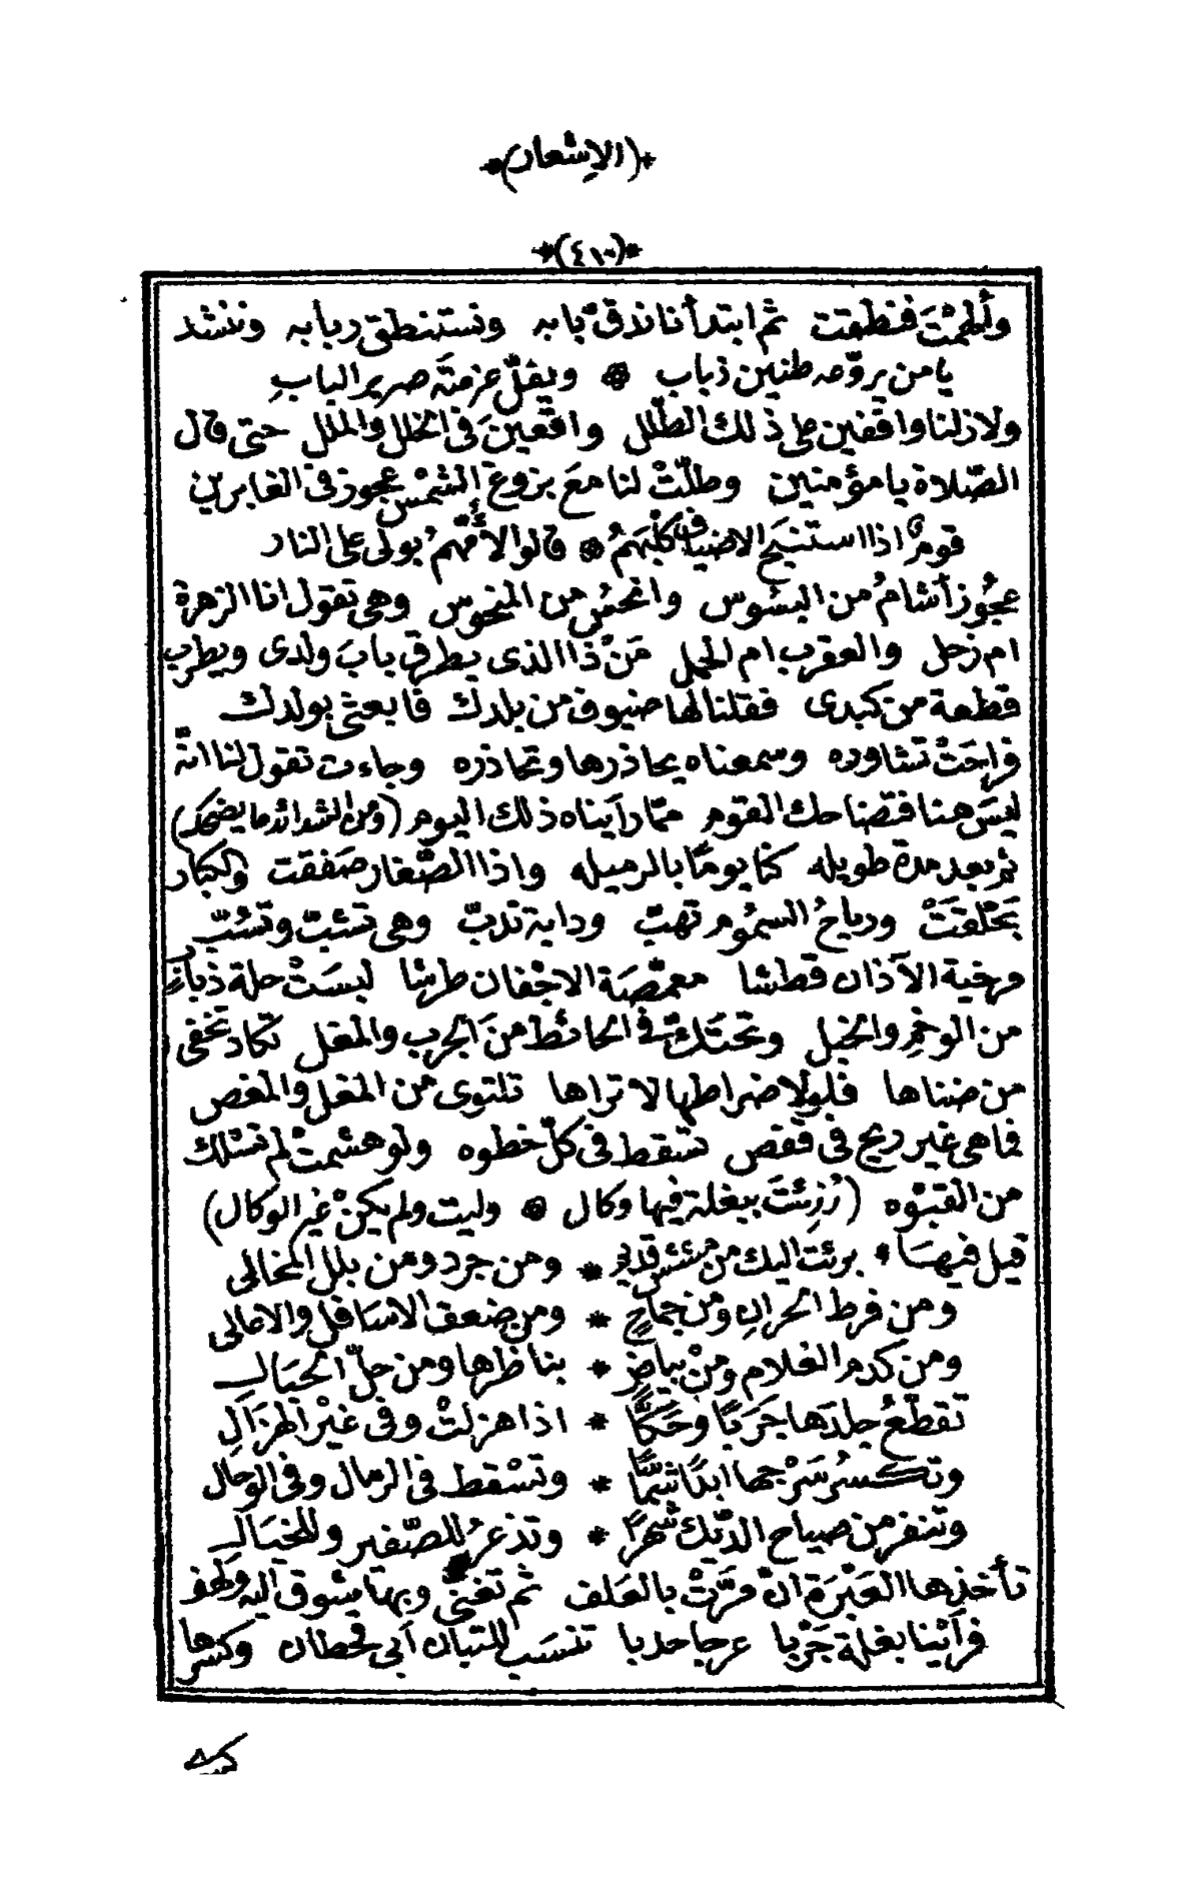 *(الإشعار)*
*(٤١٠)*
وأُلطِمَتْ فنطقت ثم ابتدأنا ندقّ بابه ونستنطق ربابه وننشد
يا من يروّعه طنين ذباب ويفلّ عزمتَه صرير البابِ
ولازلنا واقفين على ذلك الطلل واقعينَ فى الخلل والملل حتى قال
الصّلاة يا مؤمنين وطلّتْ لنا معَ بزوغ الشمْس عجوز فى الغابرين
قومٌ اذا استنبح الاضياف كلْبَهمُ قالوا لأُمّهمُ بولى على النار
عجُوز أشامُ من البسُوس وانحسُ من المنحوس وهى تقول انا الزهرة
ام زحل والعقرب ام الحمل مَنْ ذا الذى يطرق بابَ ولدى ويطرب
قطعة من كبدى فقلنا لها ضيوف من بلدك فابعثى بولدك
فراحَتْ تشاوره وسمعناه يحاذرها وتحاذره وجاءت تقول لنا انّه
ليسَ هنا فتضاحك القوم ممّا رأيناه ذلك اليوم (ومن الشدائد ما يضحك)
ثم بعد مدة طويله كنّا يومًا بالرميله واذا الصّغار صَفقت والكبار
بَحْلقَتْ ورياحُ السمُوم تهبّ ودابة تدبّ وهى تشِبّ وتسُبّ
مرخية الآذان قطشا مغمّضة الاجْفان طرشا لبسَتْ حلة ذبابٍ
من الوخم والخبل وتحتَكّ فى الحائط منَ الجرب والمغل تكاد تخفى
من ضناها فلولا ضراطها لا تراها تلتوى من المغل والمغص
فما هى غير ريح فى قفص تسقط فى كلّ خطوه ولو هشّمتْ لم تسْلك
من القبْوه (رُزِئتَ ببغلة فيها وكال وليت ولم يكنْ غير الوكال)
قيل فيهَا * برئت اليك من مشش قديم * ومن جرد ومن بلل المخالى
ومن فرط الحرانِ ومن جماحٍ * ومن ضعف الاسافل والاعالى
ومن كدم الغلام ومنْ بياضٍ * بناظرها ومن حلّ الحبَالِ
تقطّعُ جلدَها جَرَبًا وحَكًّا * اذا هزلتْ وفى غيْر الهزَالِ
وتكسرُ سَرْجها ابدًا شمّا * وتسْقط فى الرمال وفى الوحال
وتنفر من صياح الدّيك شهرًا * وتذعرُ للصّفير وللخبَالِ
تأخذها العَبْرَة انْ مرّتْ بالعَلف ثم تغنّى وبها يشوق اليه ولهف
فرأيْنا بغلة جَرْبا عرجا حدبا تنسَب للتبان أبى قحطان وكسرها